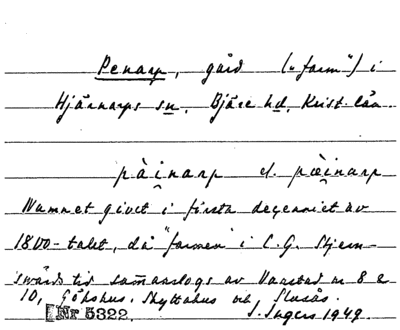 Penarp, gård ("farm") i
Hjärnarps sn, Bjäre hd, Krist. län.
pài̯narp el. pæ̀i̯narp
Namnet givet i första decenniet av
1800-talet, då "farmen" i C. G. Stjern-
swärds tid sammanslogs av Vanstad nr 8 o
10, Göhshus, Skyttahus och Slasås.
Nr 5322. I. Ingers 1949.